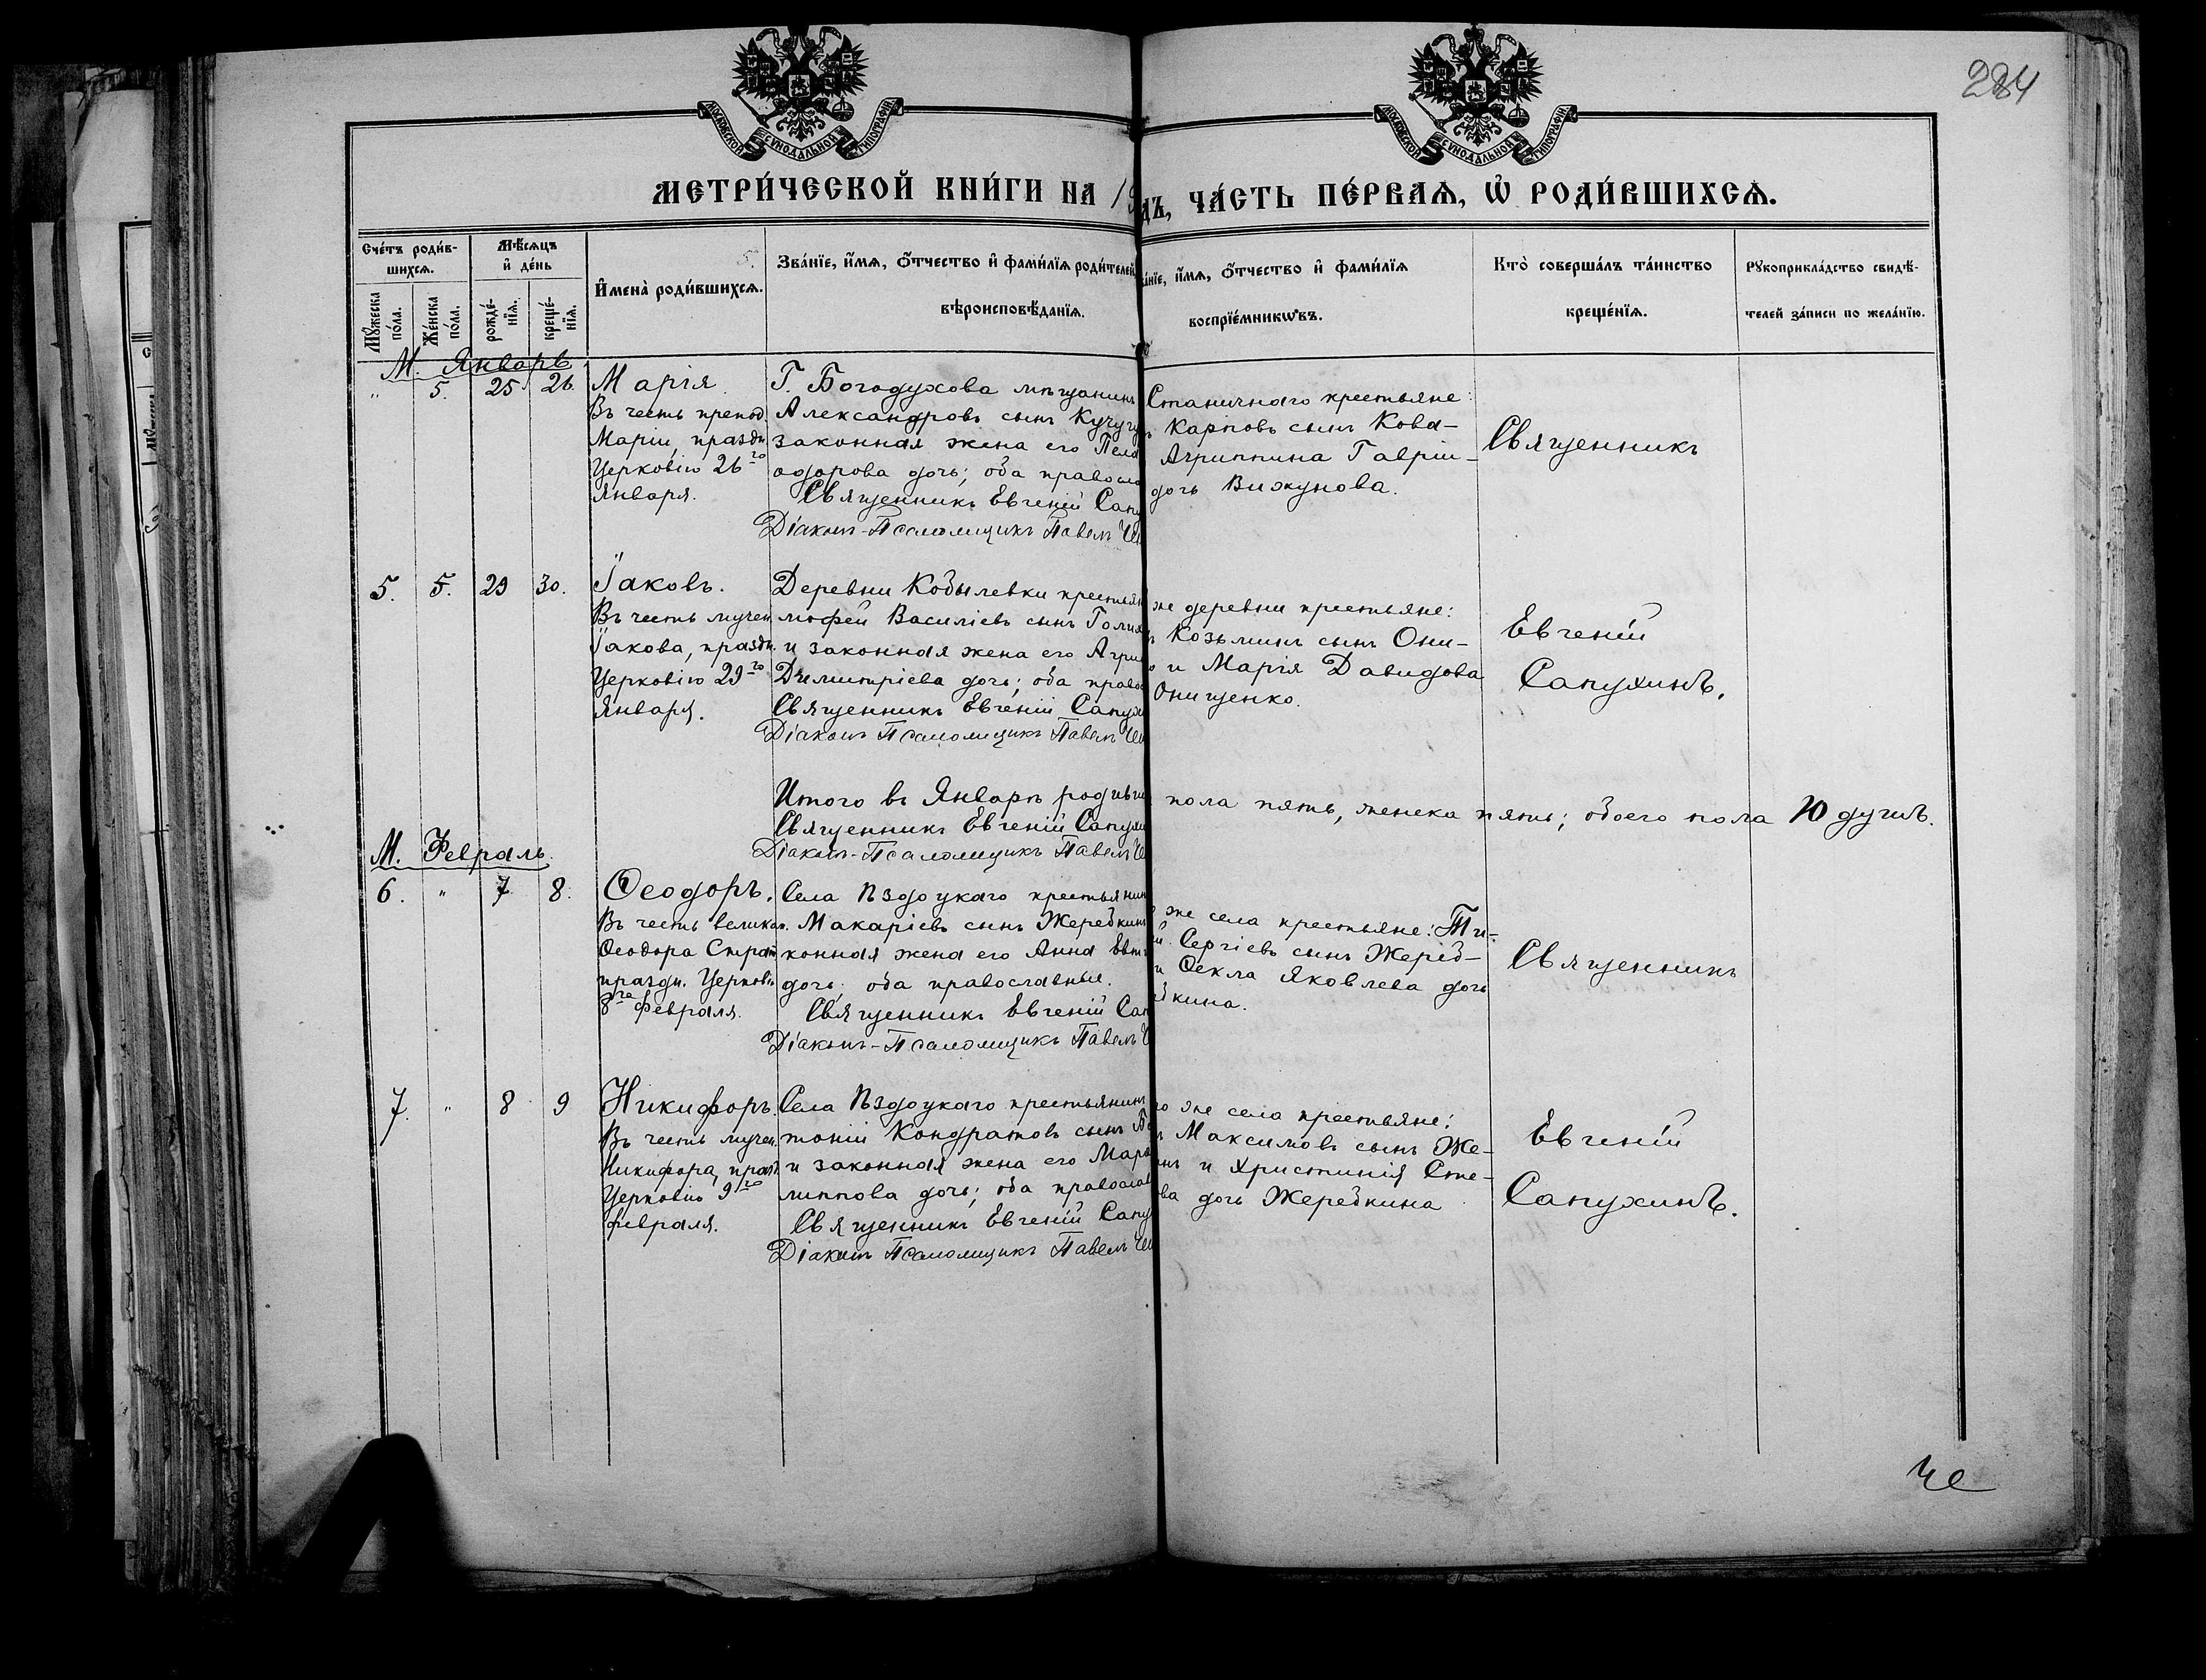 284
МОСКОВСКОЙ СѴНОДАЛЬНОЙ ТИПОГРАФІИ
МОСКОВСКОЙ СѴНОДАЛЬНОЙ ТИПОГРАФІИ
МЕТРИ́ЧЕСКОЙ КНИ́ГИ НА 19
ДЪ, ЧА́СТЬ ПЕ́РВАѦ, Ѡ҆ РОДИ́ВШИХСѦ.
Сче́тъ роди́в-
шихсѧ.
Мꙋ́жеска по́ла.
Же́нска по́ла.
Мѣ́сѧцъ
и҆ де́нь
рожде́-
нїѧ.
креще́-
нїѧ.
И҆мена̀ роди́вшихсѧ.
Зва́нїе, и҆́мѧ, ѻ҆́тчество и҆ фами́лїѧ роди́телей
вѣроисповѣ́данїѧ.
а́нїе, и҆́мѧ, ѻ҆́тчество и҆ фами́лїѧ
воспрїе́мникѡвъ.
Кто̀ соверша́лъ та́инство
креще́нїѧ.
Рꙋкоприкла́дство свидѣ́-
телей за́писи по жела́нїю.
М. Январь
" 5. 25 26
Марія
Въ честь препод.
Маріи, праздн.
Церковію 26го
Января.
Г. Богодухова мѣщанинъ
Александровъ сынъ Кучугу
законная жена его Пела
одорова дочь; оба правосла
Священникъ Евгеній Сапу
Діаконъ-Псаломщикъ Павелъ Че
Станичнаго крестьяне:
ъ Карповъ сынъ Кова-
Агриппина Гаврiи-
дочь Вижунова.
Священникъ
5. 5. 29 30.
Іаковъ.
Въ честь мучен.
Іакова, праздн.
Церковію 29го
Января.
Деревни Кобылевки крестьян
мофей Василіевъ сынъ Голи
и законная жена его Агри
Димитріева дочь; оба право
Священникъ Евгеній Сапух
Діаконъ Псаломщикъ Павелъ Че
же деревни крестьяне:
ъ Козьминъ сынъ Они-
о и Марія Давидова
Онищенко.
Евгеній
Сапухинъ.
Итого въ Январѣ родивши
Священникъ Евгеній Сапухи
Діаконъ-Псаломщикъ Павелъ Че
пола пять, женска пять; обоего пола 10 душъ.
М. Февраль
6. " 7 8.
Ѳеодоръ.
Въ честь великом.
Ѳеодора Страт.
праздн. Церковію
8го Февраля.
Села Пздоцкаго крестьянин
Макаріевъ сынъ Жеребкинъ
конная жена его Анна Евт
дочь; оба православные.
Священникъ Евгеній Сап
Діаконъ-Псаломщикъ Павелъ Ч
же села крестьяне: Ти-
й Сергіевъ сынъ Жереб-
и Ѳекла Яковлева дочь
бкина.
Священникъ
7. " 8 9
Никифоръ.
Въ честь мучен.
Никифора, празд.
Церковію 9го
февраля.
Села Пздоцкаго крестьянинъ
тоній Кондратовъ сынъ
и законная жена его Мар
липпова дочь; оба православ
Священникъ Евгеній Сапу
Діаконъ Псаломщикъ Павелъ Че
го же села крестьяне:
ъ Максимовъ сынъ Же-
нъ и Христинія Сте-
ва дочь Жеребкина
Евгеній
Сапухинъ.